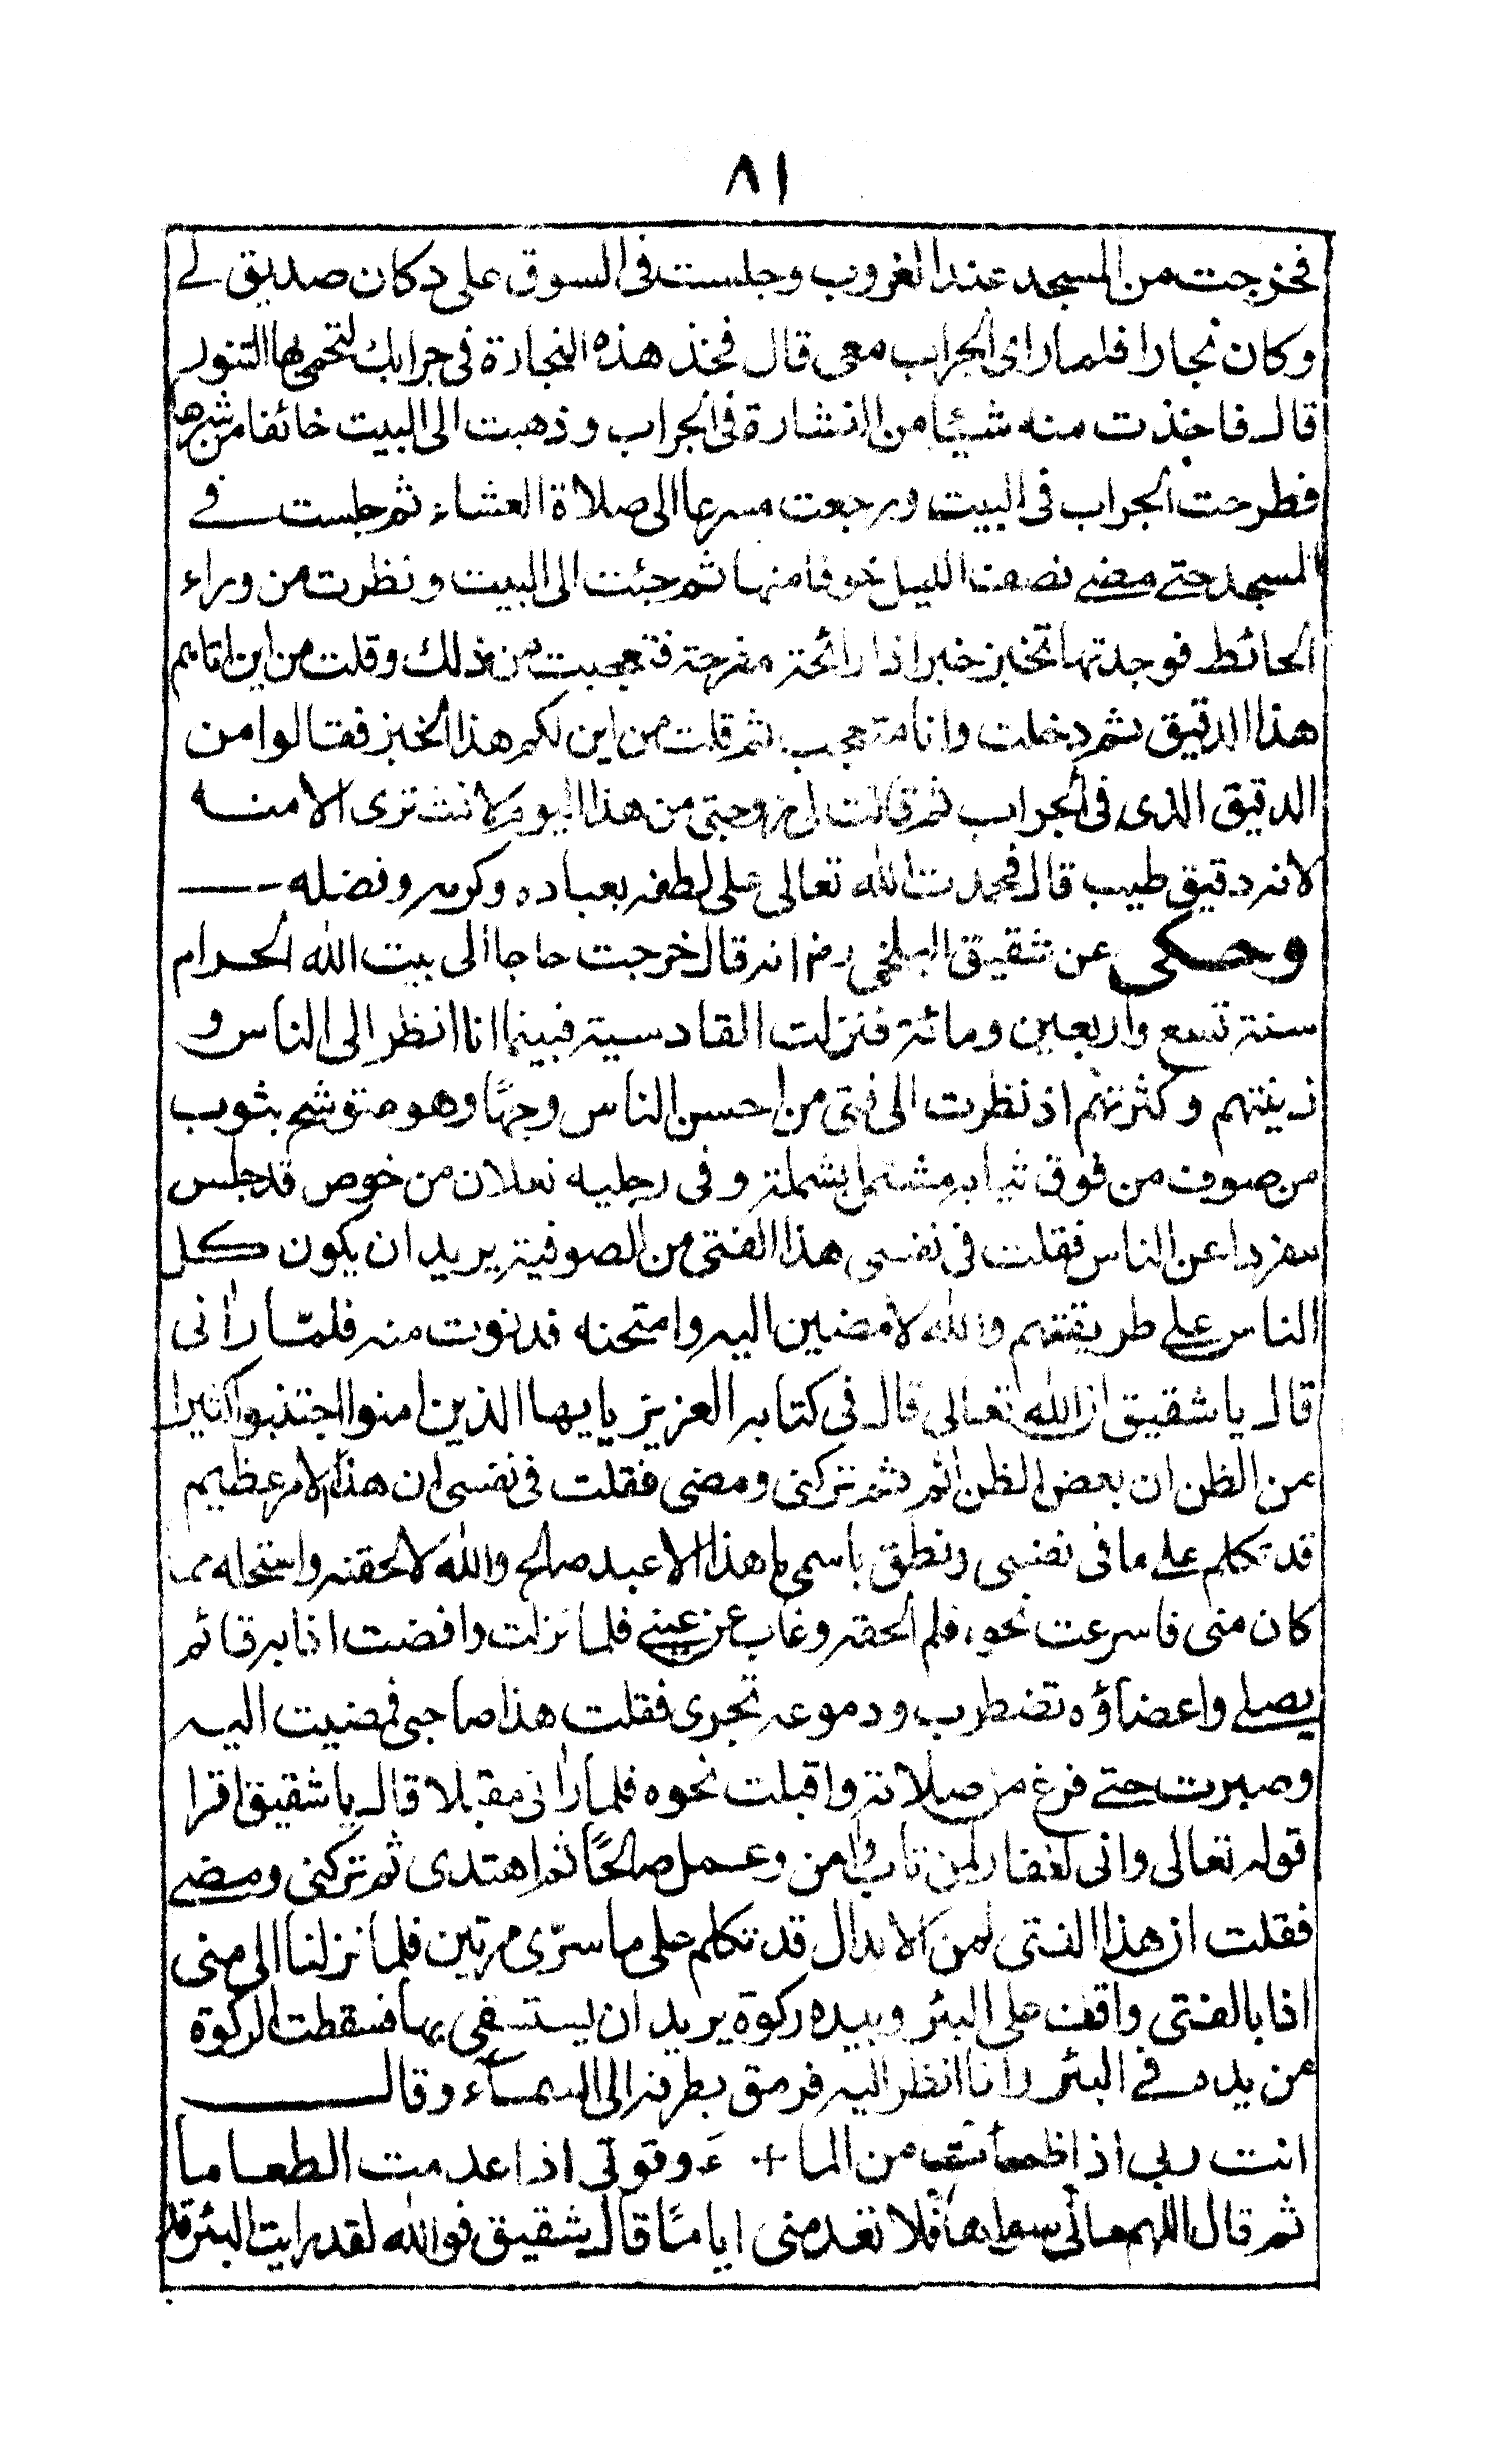 ٨١
فخرجت من المسجد عند الغروب وجلست فى السوق على دكان صديق لے
وكان نجارا فلما راى الجراب معى قال فخذ هذه النجارة فى جرابك لتحمى بها التنور
قال فاخذت منه شيئا من النشارة فى الجراب وذهبت الى البيت خائفا من شرها
فطرحت الجراب فى البيت ورجعت مسرعا الى صلاة العشاء ثم جلست فے
المسجد حتے مضے نصف الليل خوفا منها ثم جئت الى البيت ونظرت من وراء
الحائط فوجدتها تخبز خبزا ذا رائحة مفرحة فتعجبت من ذلك وقلت من اين اتاهم
هذا الدقيق ثم دخلت وانا متعجب ثم قلت من اين لكم هذا الخبز فقالوا من
الدقيق الذى فى الجراب ثم قالت لى زوجتى من هذا اليوم لا تشترى الا منه
لانه دقيق طيب قال فحمدت الله تعالى على لطفه بعباده وكرمه وفضله
وحكى عن شقيق البلخى رضہ انه قال خرجت حاجا الى بيت الله الحرام
سنة تسع واربعين ومائة فنزلت القادسية فبينما انا انظر الى الناس و
زينتهم وكثرتهم اذ نظرت الى فتى من احسن الناس وجهًا وهو متوشح بثوب
من صوف من فوق ثيابه مشتمل بشملة وفى رجليه نعلان من خوص قد جلس
منفردا عن الناس فقلت فى نفسى هذا الفتى من الصوفية يريد ان يكون كل
الناس علے طريقتهم والله لامضين اليه وامتحنه فدنوت منه فلمّا رأنى
قال يا شقيق ان الله تعالى قال فى كتابه العزيز يايها الذين امنوا اجتنبوا كثيرا
من الظن ان بعض الظن اثم ثم تركنى ومضى فقلت فى نفسى ان هذا الامر عظيم
قد تكلم علے ما فى نفسى ونطق باسمى ما هذا الا عبد صالح والله لالحقنه واستحله مما
كان منى فاسرعت نحوه فلم الحقه وغاب عن عينے فلما نزلت وافضت اذا به قائم
يصلے واعضاؤه تضطرب ودموعه تجرى فقلت هذا صاحبى فمضيت اليه
وصبرت حتے فرغ من صلاته واقبلت نحوه فلما رأنى مقبلا قال يا شقيق اقرا
قوله تعالى وانى لغفار لمن تاب وامن وعمل صالحًا ثم اهتدى ثم تركنى ومضے
فقلت ان هذا الفتى لمن الابدال قد تكلم على ما سرّى مرتين فلما نزلنا الى منى
اذا بالفتى واقف على البئر وبيده ركوة يريد ان يستسقى بها فسقطت الركوة
من يده فے البئر وانا انظر اليه فرمق بطرفه الى السمآء وقال
انت ربى اذا ظمأت من الما + ءَ وقوتى اذا عدمت الطعاما
ثم قال اللهم مالى سواها فلا تعدمنى اياها قال شقيق فوالله لقد رايت البئر قد